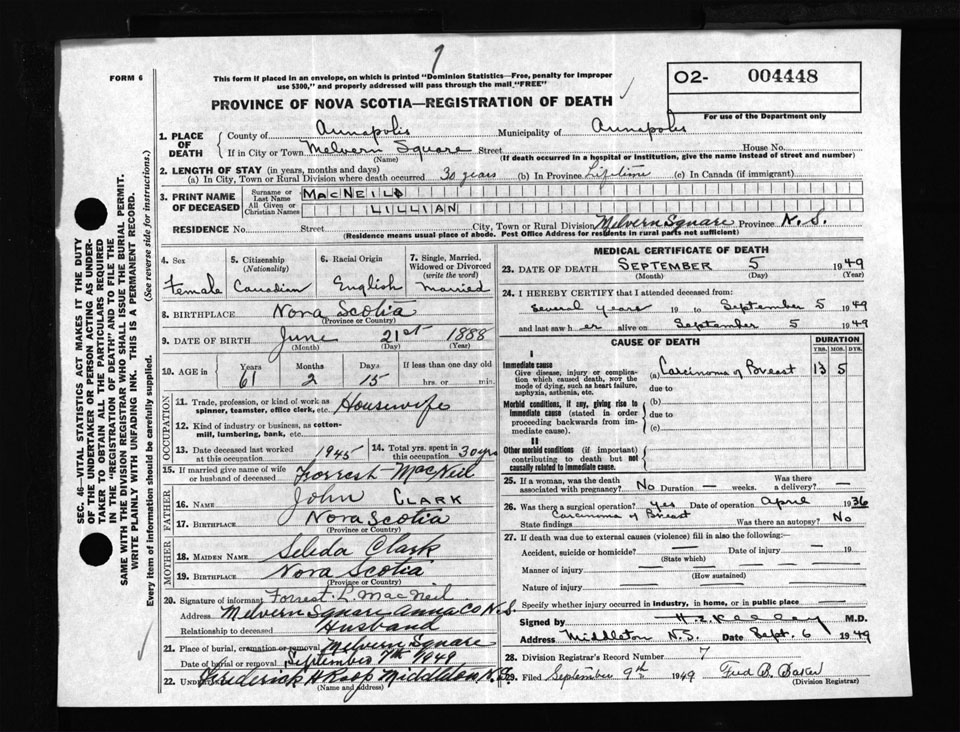 1
FORM 6
This form if placed in an envelope, on which is printed "Dominion Statistics—Free, penalty for improper
use $300," and properly addressed will pass through the mail "FREE"
O2- 004448
For use of the Department only
PROVINCE OF NOVA SCOTIA—REGISTRATION OF DEATH
1. PLACE OF DEATH
County of Annapolis Municipality of Annapolis
If in City or Town Melvern Square Street House No.
(Name) (If death occurred in a hospital or institution, give the name instead of street and number)
2. LENGTH OF STAY (in years, months and days)
(a) In City, Town or Rural Division where death occurred 30 years (b) In Province Lifetime (c) In Canada (if immigrant)
3. PRINT NAME OF DECEASED
Surname or Last Name MACNEIL
All Given or Christian Names LILLIAN
RESIDENCE No. Street City, Town or Rural Division Melvern Square Province N.S.
(Residence means usual place of abode. Post Office Address for residents in rural parts not sufficient)
4. Sex
Female
5. Citizenship (Nationality)
Canadian
6. Racial Origin
English
7. Single, Married, Widowed or Divorced (write the word)
Married
8. BIRTHPLACE Nova Scotia
(Province or Country)
9. DATE OF BIRTH June 21st 1888
(Month) (Day) (Year)
10. AGE in Years 61 Months 2 Days 15 If less than one day old
hrs. or min.
OCCUPATION
11. Trade, profession, or kind of work as spinner, teamster, office clerk, etc. Housewife
12. Kind of industry or business, as cotton-mill, lumbering, bank, etc.
13. Date deceased last worked at this occupation 1945
14. Total yrs. spent in this occupation 30 yrs
15. If married give name of wife or husband of deceased Forrest MacNeil
FATHER
16. NAME John CLARK
17. BIRTHPLACE Nova Scotia
(Province or Country)
MOTHER
18. MAIDEN NAME Clark
19. BIRTHPLACE Nova Scotia
(Province or Country)
20. Signature of informant Forrest L. MacNeil
Address Melvern Square Anna Co N.S.
Relationship to deceased Husband
21. Place of burial, cremation or removal Melvern Square
Date of burial or removal September 7th 1949
22. Frederick H Roop Middleton N.S.
(Name and address)
MEDICAL CERTIFICATE OF DEATH
23. DATE OF DEATH SEPTEMBER 5 1949
(Month) (Day) (Year)
24. I HEREBY CERTIFY that I attended deceased from:
Several years 19 to September 5 1949
and last saw her alive on September 5 1949
CAUSE OF DEATH
DURATION
YRS. MOS. DYS.
I
Immediate cause
Give disease, injury or complication which caused death, NOT the mode of dying, such as heart failure, asphyxia, asthenia, etc.
(a) Carcinoma of Breast 13 5
due to
Morbid conditions, if any, giving rise to immediate cause (stated in order proceeding backwards from immediate cause).
(b)
due to
(c)
II
Other morbid conditions (if important) contributing to death but not causally related to immediate cause.
25. If a woman, was the death associated with pregnancy? No Duration — weeks. Was there a delivery? —
26. Was there a surgical operation? yes Date of operation April 1936
State findings Carcinoma of Breast Was there an autopsy? No
27. If death was due to external causes (violence) fill in also the following:—
Accident, suicide or homicide? — Date of injury — 19
(State which)
Manner of injury —
(How sustained)
Nature of injury —
Specify whether injury occurred in industry, in home, or in public place —
Signed by M.D.
Address Middleton N.S. Date Sept. 6 1949
28. Division Registrar's Record Number 7
29. Filed September 9th 1949 Fred B. Baker
(Division Registrar)
SEC. 46—VITAL STATISTICS ACT MAKES IT THE DUTY
OF THE UNDERTAKER OR PERSON ACTING AS UNDER-
TAKER TO OBTAIN ALL THE PARTICULARS REQUIRED
IN THE "REGISTRATION OF DEATH" AND TO FILE THE
SAME WITH THE DIVISION REGISTRAR WHO SHALL ISSUE THE BURIAL PERMIT.
WRITE PLAINLY WITH UNFADING INK. THIS IS A PERMANENT RECORD.
Every item of information should be carefully supplied. (See reverse side for instructions.)